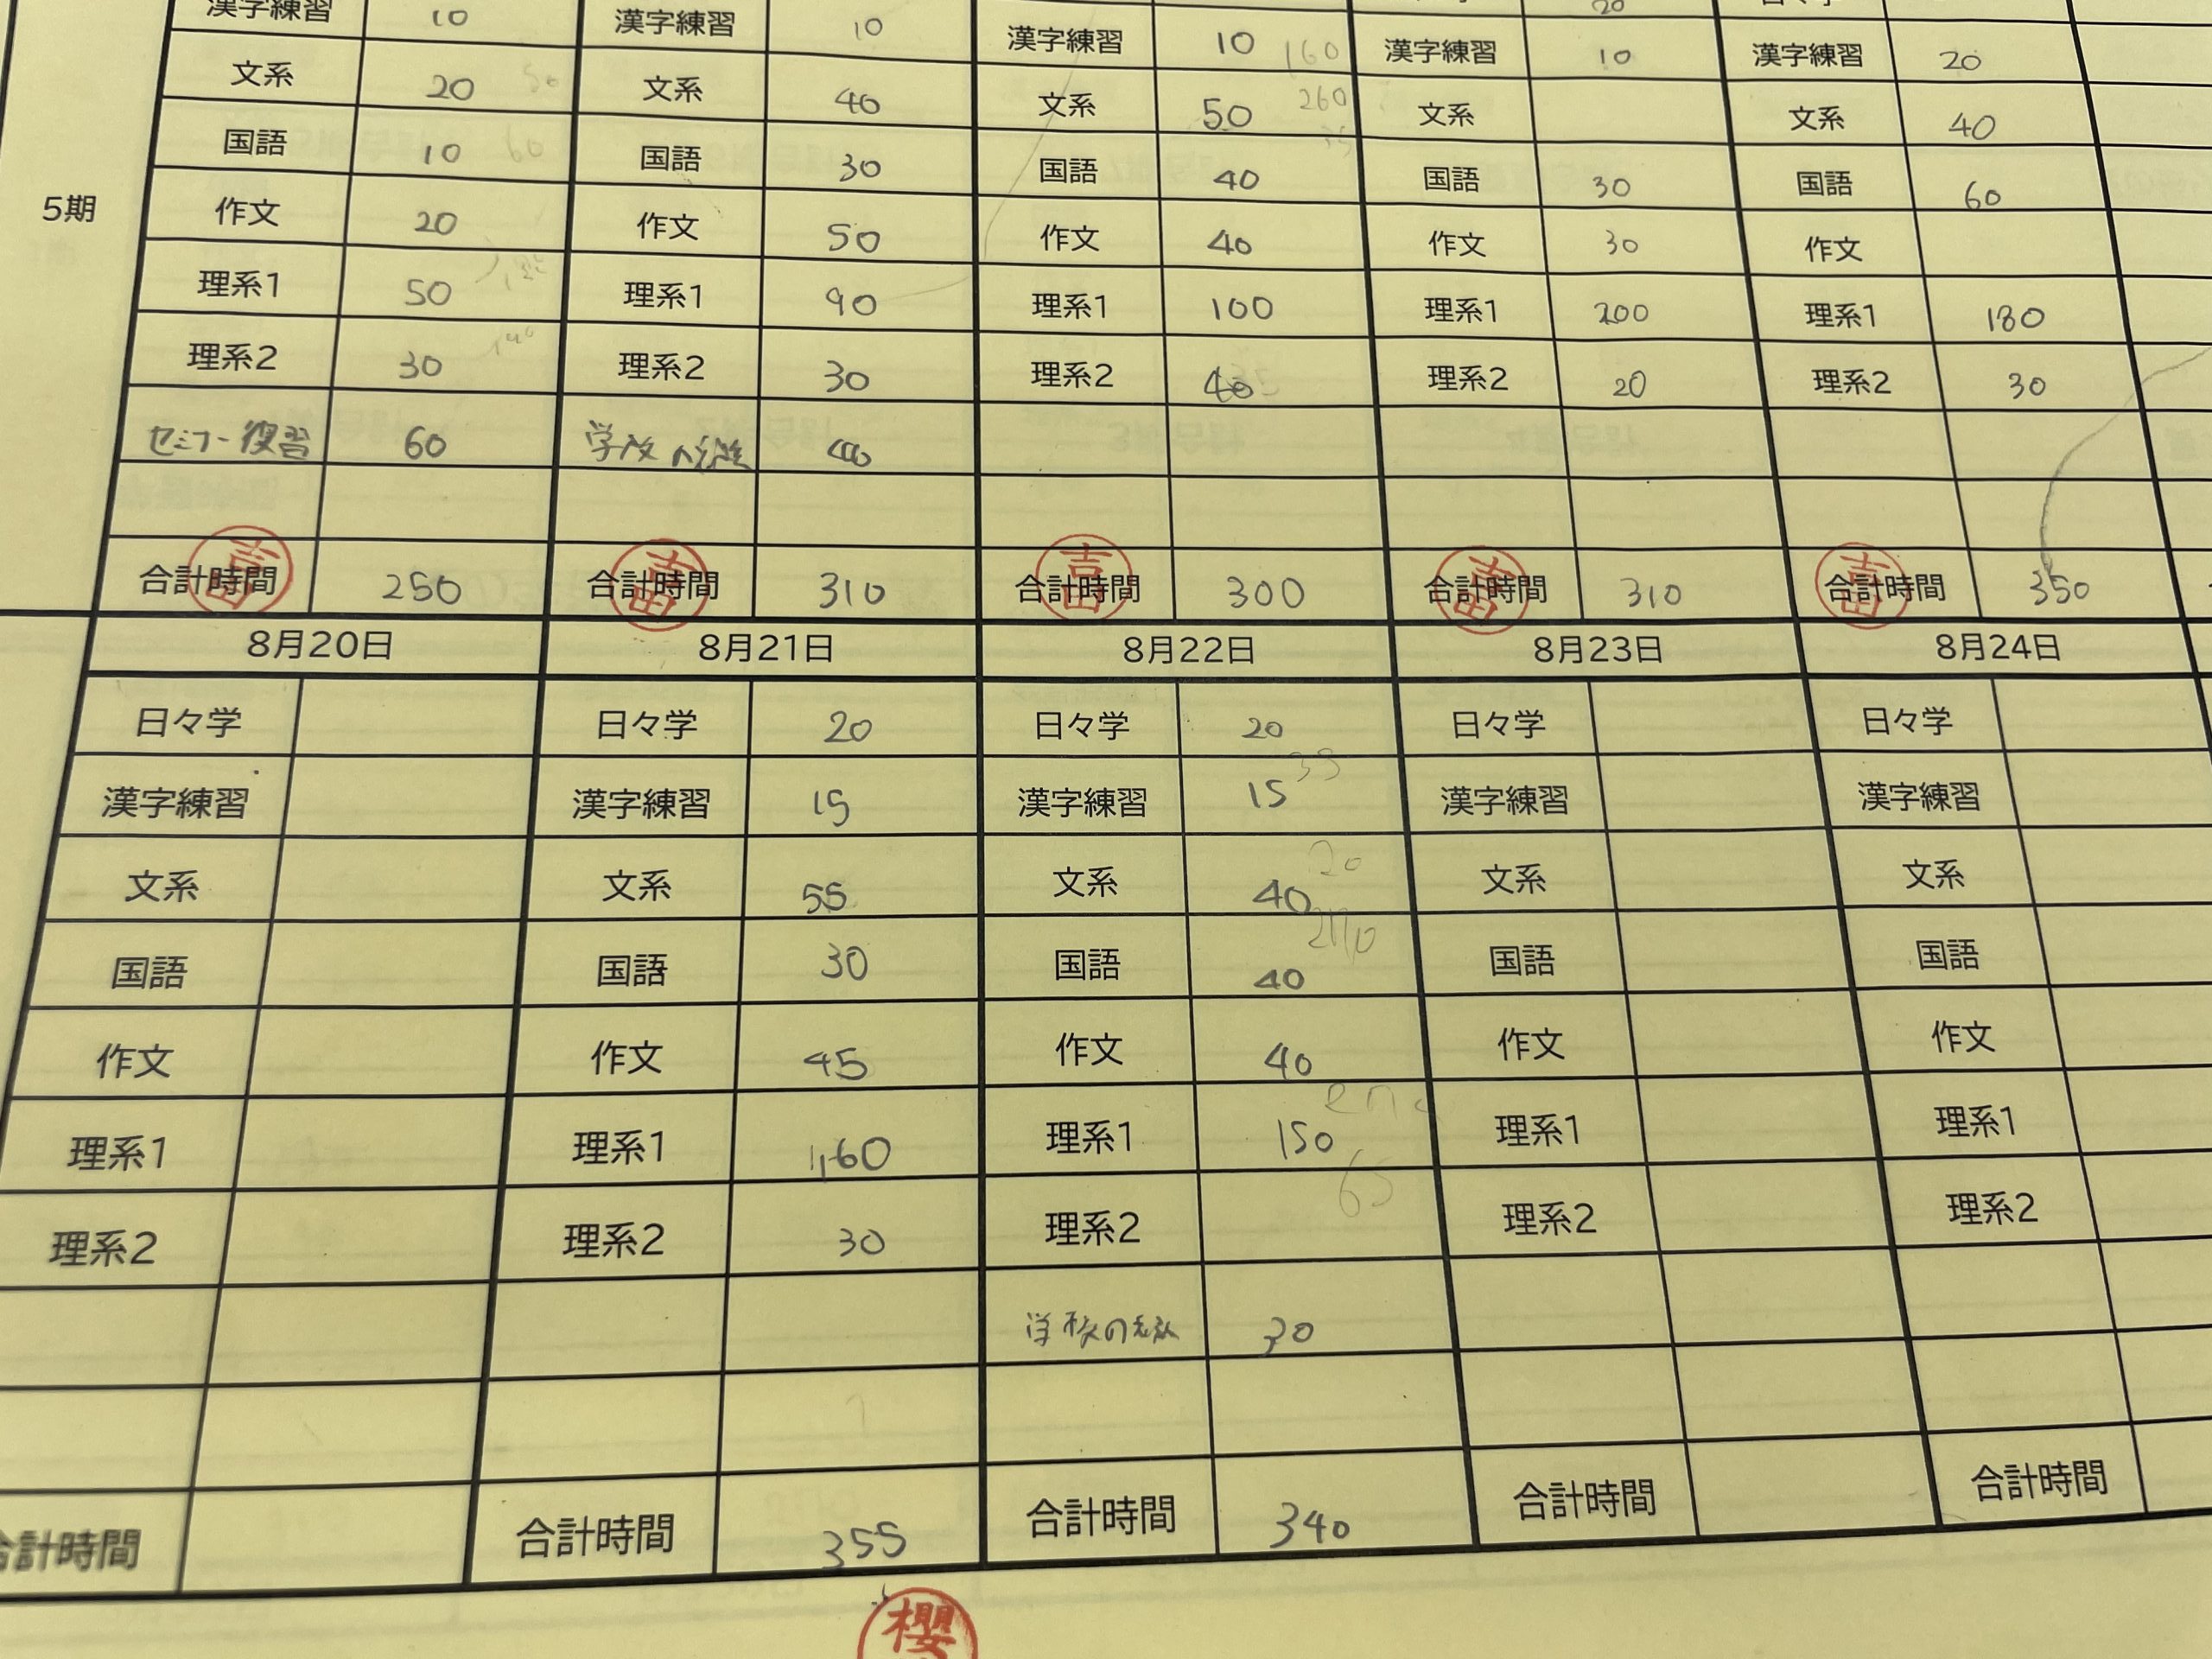 漢字練習 10 漢字練習 10 漢字練習 10 160 漢字練習 10 漢字練習 20
文系 20 50 文系 40 文系 50 260 文系 文系 40
5期 国語 10 60 国語 30 国語 40 国語 30 国語 60
作文 20 作文 50 作文 40 作文 30 作文
理系1 50 理系1 90 理系1 100 理系1 200 理系1 180
理系2 30 理系2 30 理系2 40 理系2 20 理系2 30
セミナー復習 60 40
合計時間 250 合計時間 310 合計時間 300 合計時間 310 合計時間 350
8月20日 8月21日 8月22日 8月23日 8月24日
日々学 日々学 20 日々学 20 日々学 日々学
漢字練習 漢字練習 15 漢字練習 15 35 漢字練習 漢字練習
文系 文系 55 文系 40 20 文系 文系
国語 国語 30 国語 40 国語 国語
作文 作文 45 作文 40 作文 作文
理系1 理系1 160 理系1 150 理系1 理系1
理系2 理系2 30 理系2 65 理系2 理系2
学校の 30
合計時間 合計時間 355 合計時間 340 合計時間 合計時間
櫻